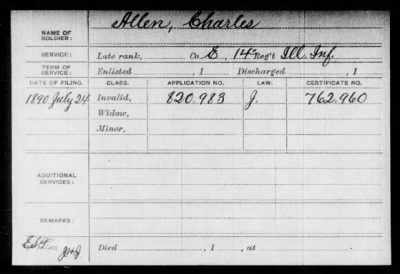 Allen, Charles
NAME OF
SOLDIER:
SERVICE: Late rank, Co. E, 14 Reg't Ill. Inf.
TERM OF
SERVICE: Enlisted , 1 Discharged , 1
DATE OF FILING. CLASS. APPLICATION NO. LAW. CERTIFICATE NO.
1890 July 24 Invalid, 820.983 J. 762.960
Widow,
Minor,
ADDITIONAL
SERVICES:
REMARKS:
Died , 1 , at